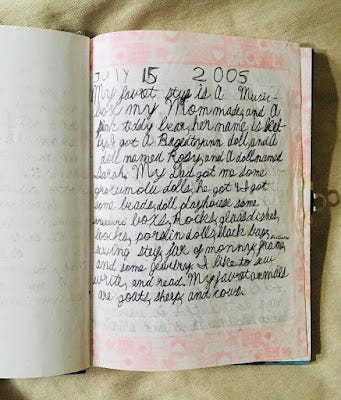 July 15 2005
My favrot stye is A Music
box my Mom made, and A
pink teddy bear, her name is
but I got A doll, and a
doll named Rosy, and A doll named
Sarah. My Dad got me some
dolls, he got & I got
some beads, doll playhouse some
boxs, Rocks, glass dishes,
books, porslin dolls, black bag,
sewing stuf, jar of monny, frame,
and some jewelry. I like to sew
write, and read. My favrot anmals
are goats, sheep, and cows.